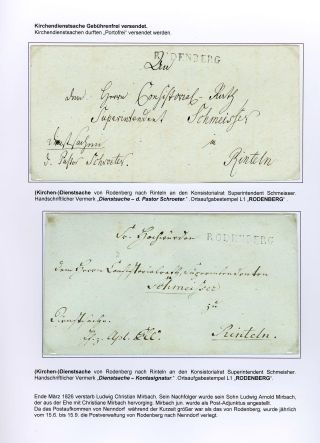 Kirchendienstsache Gebührenfrei versendet.
Kirchendienstsachen durften „Portofrei" versendet werden.
RODENBERG
Dem
dem Herrn Consistorial-Rath
Superintendent Schmeisser
in
Dienstsache
d. Pastor Schroeter.
Rinteln
(Kirchen-)Dienstsache von Rodenberg nach Rinteln an den Konsistorialrat Superintendent Schmeisser.
Handschriftlicher Vermerk „Dienstsache – d. Pastor Schroeter.". Ortsaufgabestempel L1 „RODENBERG".
RODENBERG
Sr. Hochwürden
dem Herrn Consistorialrath, Superintendenten
Schmeisser
zu
Dienstsache
Rinteln.
(Kirchen-)Dienstsache von Rodenberg nach Rinteln an den Konsistorialrat Superintendent Schmeisher.
Handschriftlicher Vermerk „Dienstsache – Kontasignatur". Ortsaufgabestempel L1 „RODENBERG".
Ende März 1826 verstarb Ludwig Christian Mirbach. Sein Nachfolger wurde sein Sohn Ludwig Arnold Mirbach,
der aus der Ehe mit Christiane Mirbach hervorging. Mirbach jun. wurde als Post-Adjunktus angestellt.
Da das Postaufkommen von Nenndorf während der Kurzeit größer war als das von Rodenberg, wurde jährlich
vom 15.6. bis 15.9. die Postverwaltung von Rodenberg nach Nenndorf verlegt.